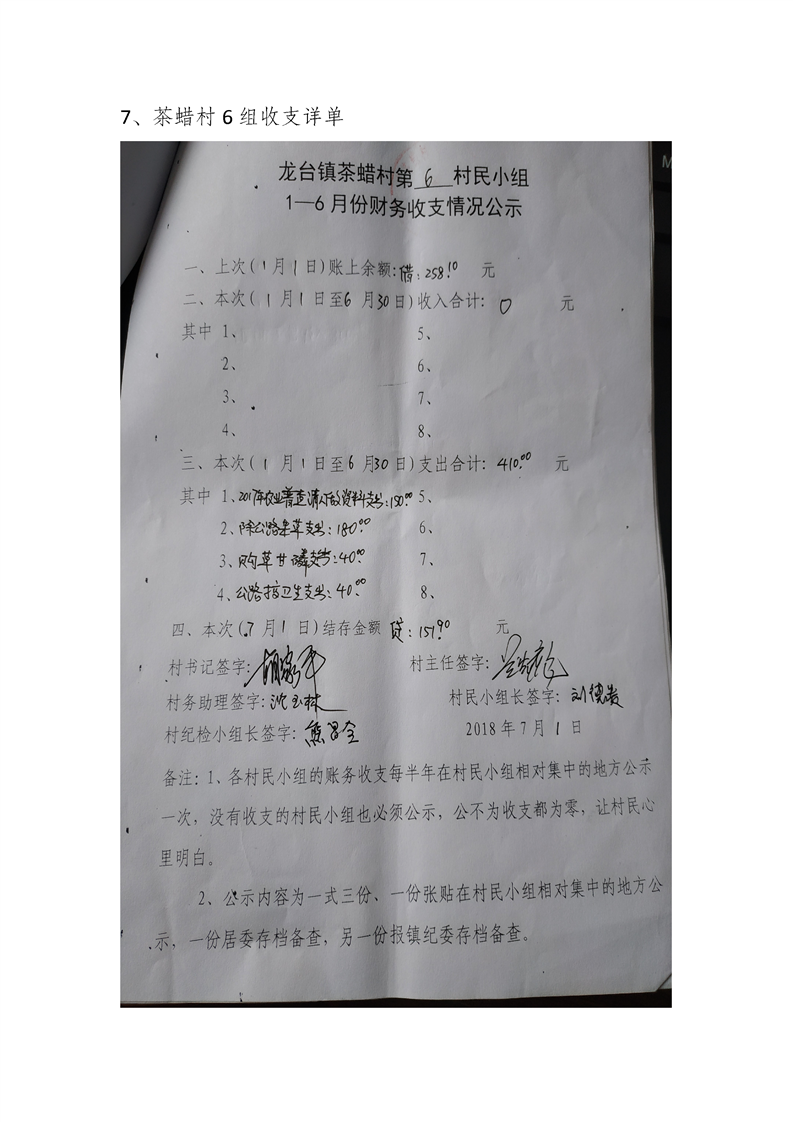 7、茶蜡村 6 组收支详单
龙台镇茶蜡村第 6 村民小组
1—6 月份财务收支情况公示
一、上次(1月1日)账上余额:借:258.10 元
二、本次(1月1日至6月30日)收入合计: 0 元
其中 1、 5、
2、 6、
3、 7、
4、 8、
三、本次(1月1日至6月30日)支出合计: 410.00 元
其中 1、2017年农业普查请人放资料支出:150.00 5、
2、除公路杂草支出:180.00 6、
3、购草甘磷支出:40.00 7、
4、公路打扫卫生支出:40.00 8、
四、本次(7月1日)结存金额 贷:151.90 元
村书记签字: 村主任签字:
村务助理签字:沈玉林 村民小组长签字:刘德贵
村纪检小组长签字:熊昌全 2018年7月1日
备注:1、各村民小组的账务收支每半年在村民小组相对集中的地方公示
一次，没有收支的村民小组也必须公示，公不为收支都为零，让村民心
里明白。
2、公示内容为一式三份、一份张贴在村民小组相对集中的地方公
示，一份居委存档备查，另一份报镇纪委存档备查。